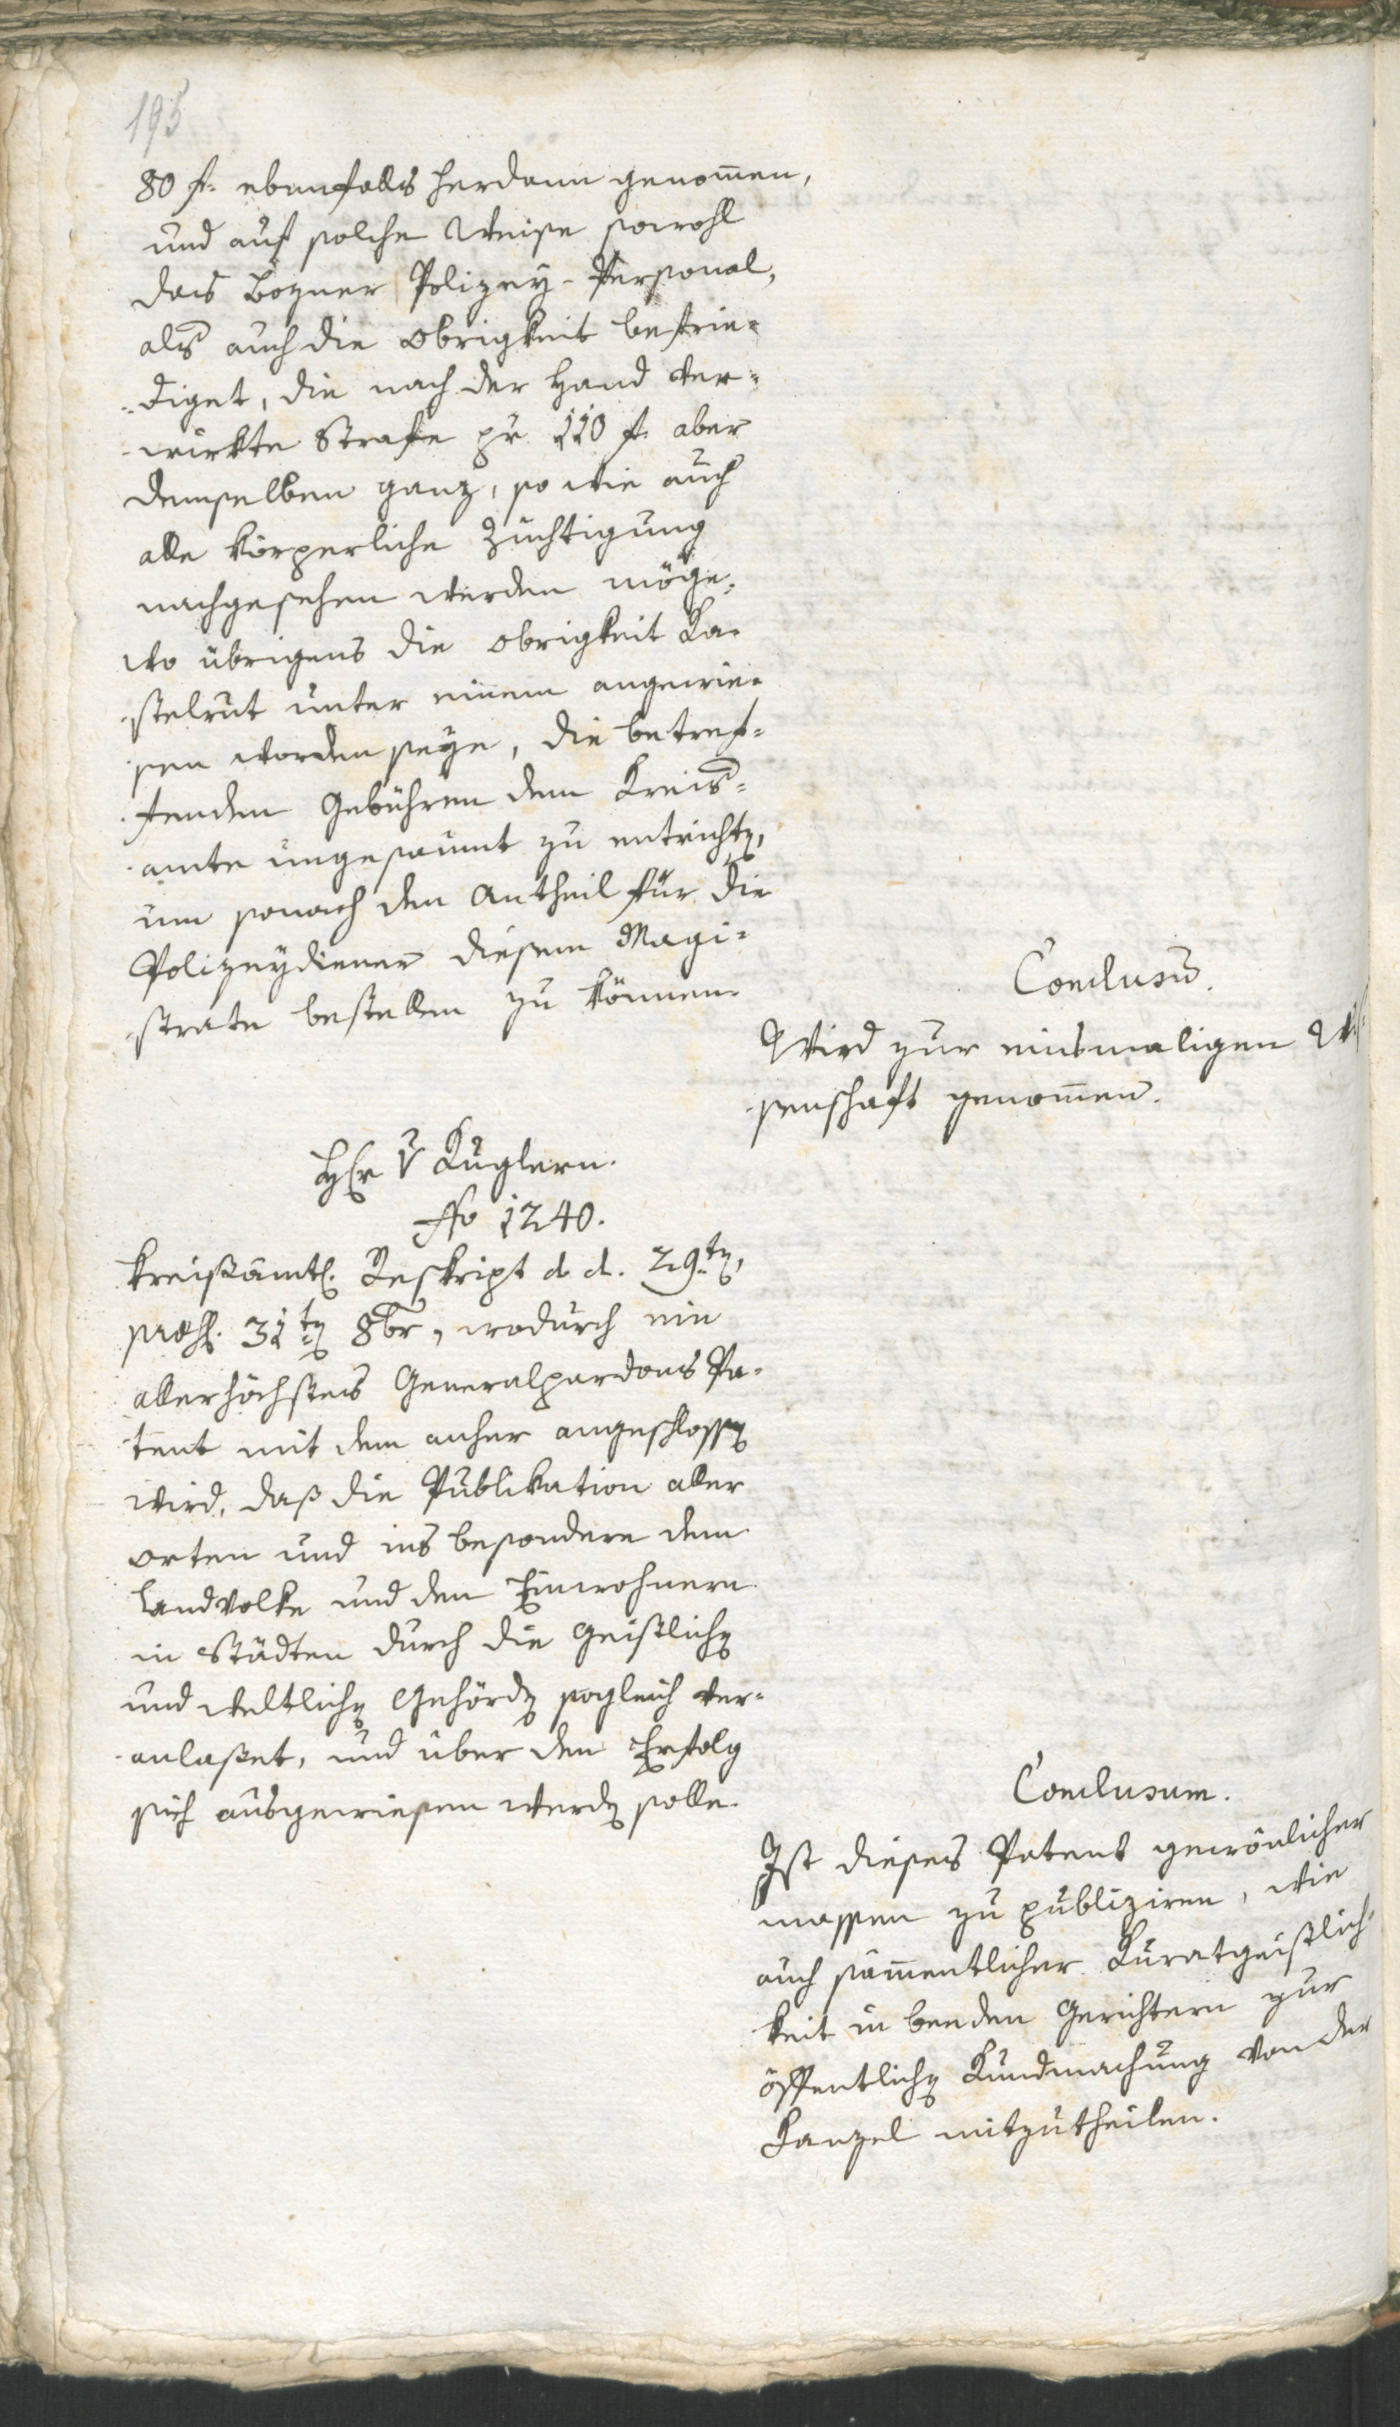 195
80 f. ebenfalls herdann genom̅en,
und auf solche Weise sowohl
das Bozner Polizey-Personal,
als auch die Obrigkeit befrie-
diget, die nach der Hand ver-
wirkte Strafe pr 110 f. aber
demselben ganz, so wie auch
alle körperliche Züchtigung
nachgesehen werden möge.
Wo übrigens die Obrigkeit Ka-
stelrut unter einem angewie-
sen worden seye, die betref-
fenden Gebühren dem Kreis-
amte ungesaumt zu entricht,
um sonach den Antheil für die
Polizeydiener diesem Magi-
strate bestellen zu können.
Conclusu̅.
Wird zur einsmaligen Wis-
senschaft genom̅en.
H̅er v Kuglern.
No 1240.
Kreisämtl. Reskript d. d. 29ten,
præs. 31ten 8br, wodurch ein
allerhöchstes Generalpardons Pa-
tent mit dem anher angeschlossen
wird, daß die Publikation aller
Orten und ins besondere dem
Landvolke und den Einwohnern
in Städten durch die geistlichen
und weltlichen Behörden sogleich ver-
anlasset, und über den Erfolg
sich ausgewiesen werden solle.
Conclusum.
Ist dieses Patent gewönlicher
massen zu publiziren, wie
auch säm̅entlicher Kuratgeistlich-
keit in beeden Gerichtern zur
öffentlichen Kundmachung von der
Kanzel mitzutheilen.